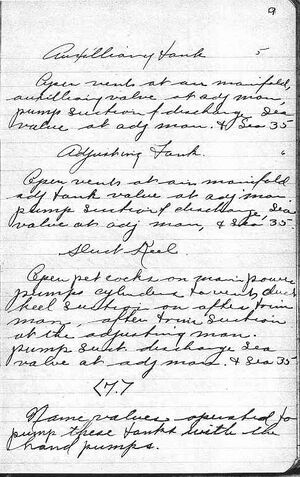 9
Auxilliary tank 5
Open vents at air manifold,
auxilliary valve at adj man,
pump suction & discharge, Sea
valve at adj man. & Sea 35
Adjusting Tank. "
Open vents at air manifold
adj tank valve at adj man.
pump suction & discharge, Sea
valve at adj man, & Sea 35.
Duct Keel
Open pet cocks on main power
pump cylinders to vent, duct
keel suction on after trim
man, after trim suction
at the adjusting man.
pump suct discharge sea
valve at adj man. & Sea 35
(7.)
Name valves operated to
pump these tanks with the
hand pumps.